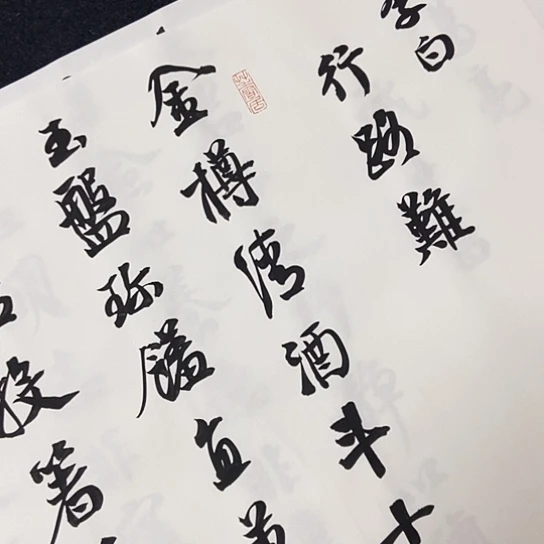 李白
行路難
金樽清酒斗十
玉盤珍饈直
投箸